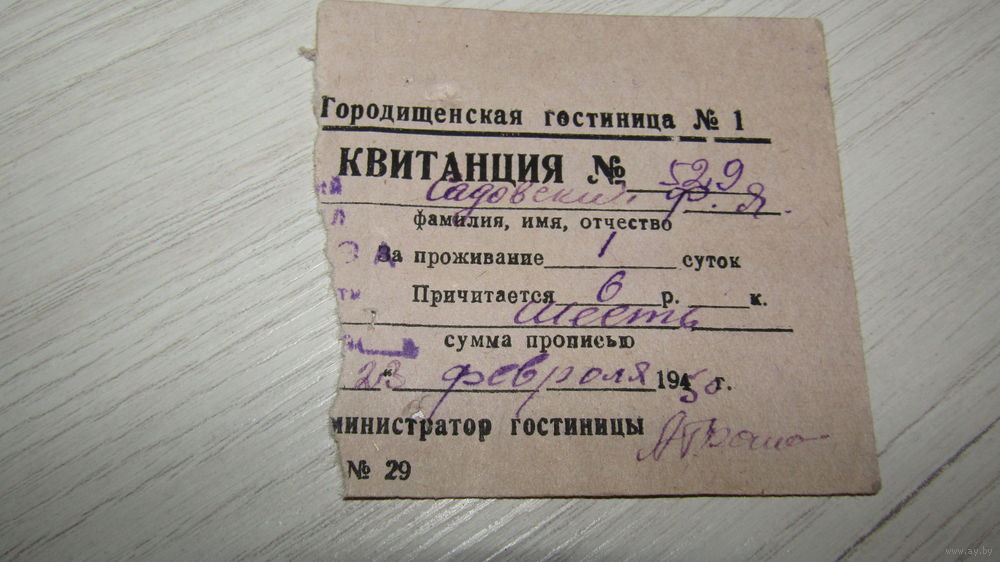 Городищенская гостиница № 1
КВИТАНЦИЯ № 529
Садовский Ф. Я.
фамилия, имя, отчество
За проживание 1 суток
Причитается 6 р. к.
Шесть
сумма прописью
23 февраля 1950 г.
министратор гостиницы
№ 29
www.ay.by